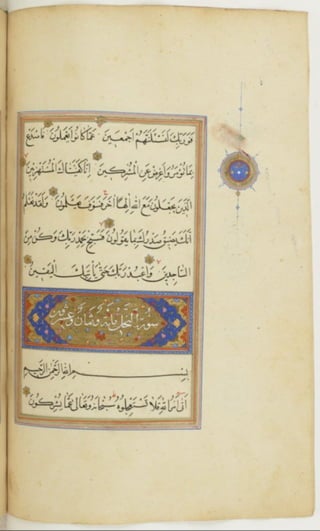 فَوَرَبِّكَ لَنَسْئَلَنَّهُمْ أَجْمَعِينَ عَمَّا كَانُوا يَعْمَلُونَ فَاصْدَعْ
بِمَا تُؤْمَرُ وَأَعْرِضْ عَنِ الْمُشْرِكِينَ إِنَّا كَفَيْنَاكَ الْمُسْتَهْزِئِينَ
الَّذِينَ يَجْعَلُونَ مَعَ اللَّهِ إِلَٰهًا آخَرَ فَسَوْفَ يَعْلَمُونَ وَلَقَدْ نَعْلَمُ
أَنَّكَ يَضِيقُ صَدْرُكَ بِمَا يَقُولُونَ فَسَبِّحْ بِحَمْدِ رَبِّكَ وَكُنْ مِنَ
السَّاجِدِينَ وَاعْبُدْ رَبَّكَ حَتَّى يَأْتِيَكَ الْيَقِينُ
سورة النحل مائة وثمان وعشرون
بِسْمِ اللَّهِ الرَّحْمَٰنِ الرَّحِيمِ
أَتَى أَمْرُ اللَّهِ فَلَا تَسْتَعْجِلُوهُ سُبْحَانَهُ وَتَعَالَى عَمَّا يُشْرِكُونَ